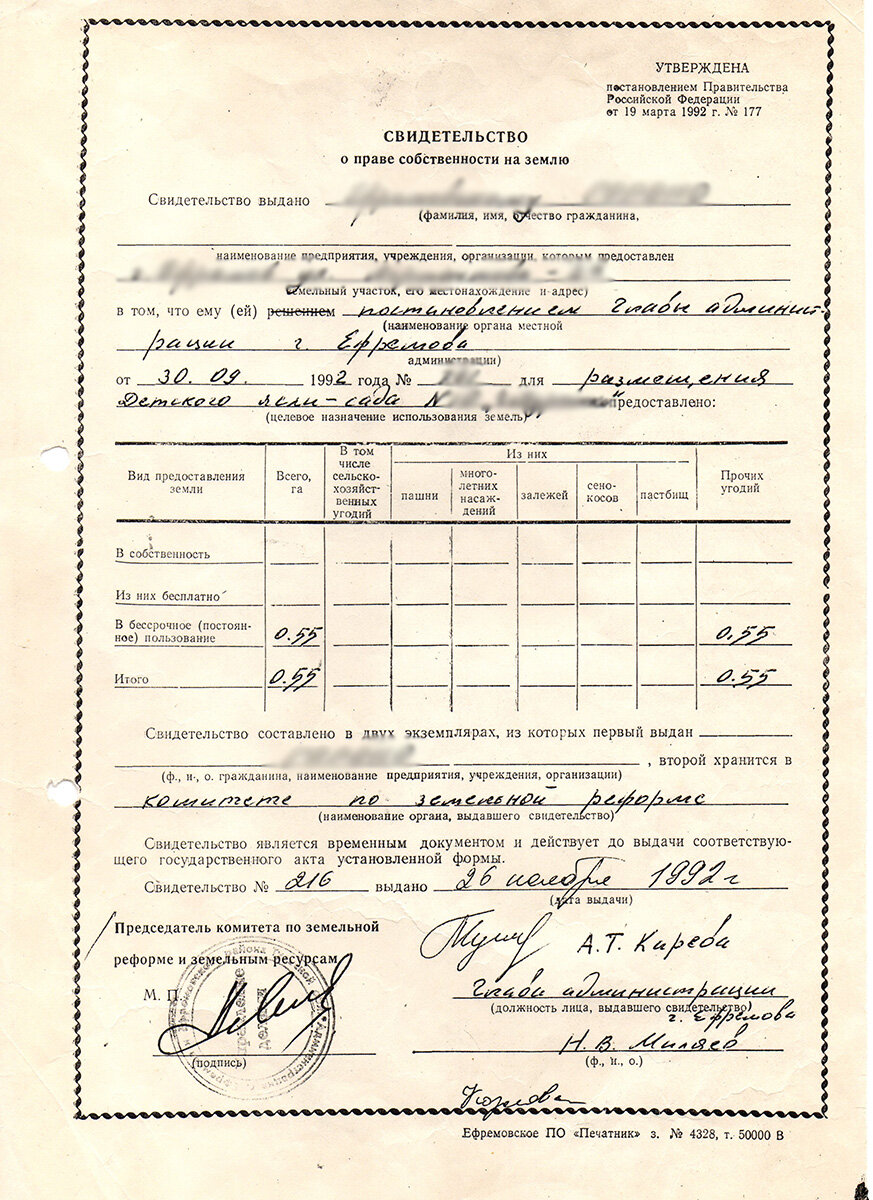 УТВЕРЖДЕНА
постановлением Правительства
Российской Федерации
от 19 марта 1992 г. № 177
СВИДЕТЕЛЬСТВО
о праве собственности на землю
Свидетельство выдано
(фамилия, имя, отчество гражданина,
наименование предприятия, учреждения, организации, которым предоставлен
земельный участок, его местонахождение и адрес)
в том, что ему (ей) решением постановлением главы админист-
(наименование органа местной
рации г. Ефремова
администрации)
от 30.09. 1992 года № для размещения
Детского ясли-сада № предоставлено:
(целевое назначение использования земель)
Вид предоставления земли
Всего, га
В том числе сельско-хозяйст-венных угодий
Из них
пашни
много-летних насаж-дений
залежей
сено-косов
пастбищ
Прочих угодий
В собственность
Из них бесплатно
В бессрочное (постоян-
ное) пользование 0.55 0,55
Итого 0.55 0.55
Свидетельство составлено в двух экземплярах, из которых первый выдан
, второй хранится в
(ф., и., о. гражданина, наименование предприятия, учреждения, организации)
комитете по земельной реформе
(наименование органа, выдавшего свидетельство)
Свидетельство является временным документом и действует до выдачи соответствую-
щего государственного акта установленной формы.
Свидетельство № 216 выдано 26 ноября 1992 г
(дата выдачи)
Председатель комитета по земельной
реформе и земельным ресурсам
А.Т. Киреева
М. П.
глава администрации
(должность лица, выдавшего свидетельство)
г. Ефремова
Н.В. Миляев
(подпись)
(ф., и., о.)
Ефремовское ПО «Печатник» з. № 4328, т. 50000 В